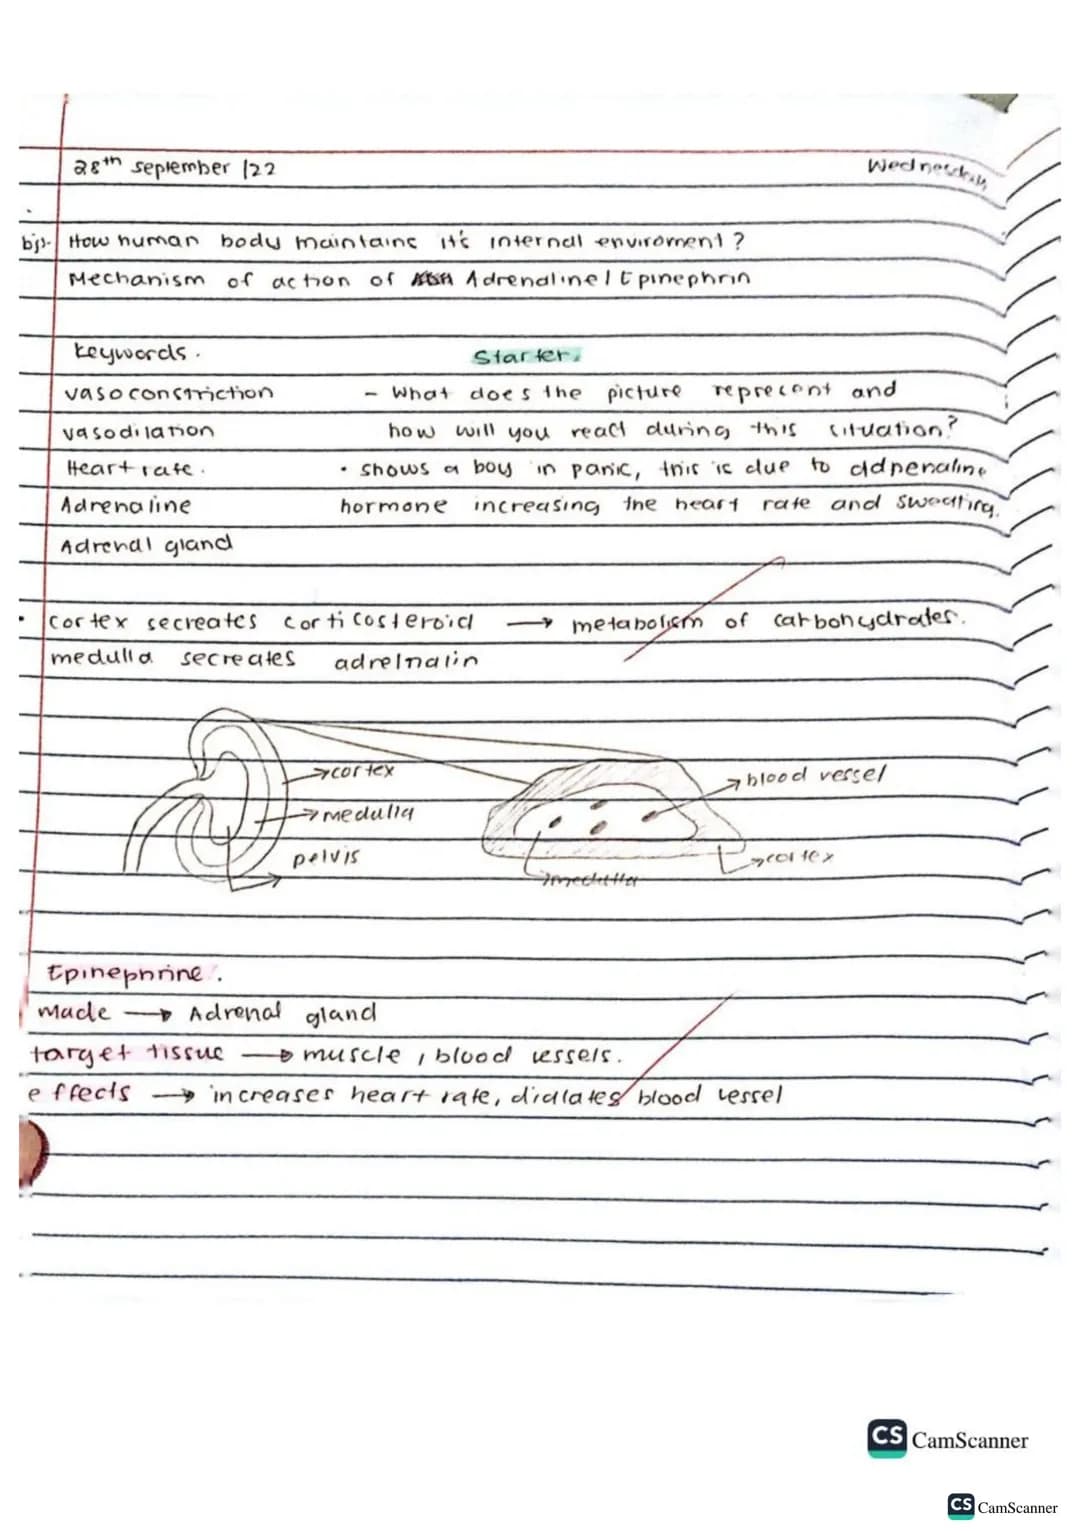 28th september /22 Wednesday
bj:- How human body maintains it's internal enviroment?
Mechanism of action of Adrenaline/Epinephrin
keywords. Starter.
vasoconstriction - What does the picture represent and
vasodilation how will you react during this situation?
Heart rate. • shows a boy in panic, this is due to adrenaline
Adrenaline hormone increasing the heart rate and sweating.
Adrenal gland
• cortex secreates corticosteroid → metabolism of carbohydrates.
medulla secreates adrelnalin
→cortex
→blood vessel
→medulla
pelvis
→cortex
→medulla
Epinephrine.
made → Adrenal gland
target tissue → muscle, blood vessels.
effects → increases heart rate, dialates blood vessel
CS CamScanner
CS CamScanner